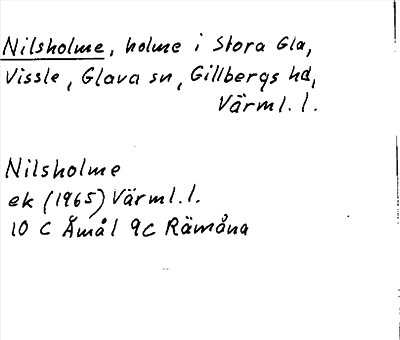 Nilsholme, holme i Stora Gla,
Vissle, Glava sn, Gillbergs hd,
Värml. l.
Nilsholme
ek (1965) Värml. l.
10 C Åmål 9c Rämåna